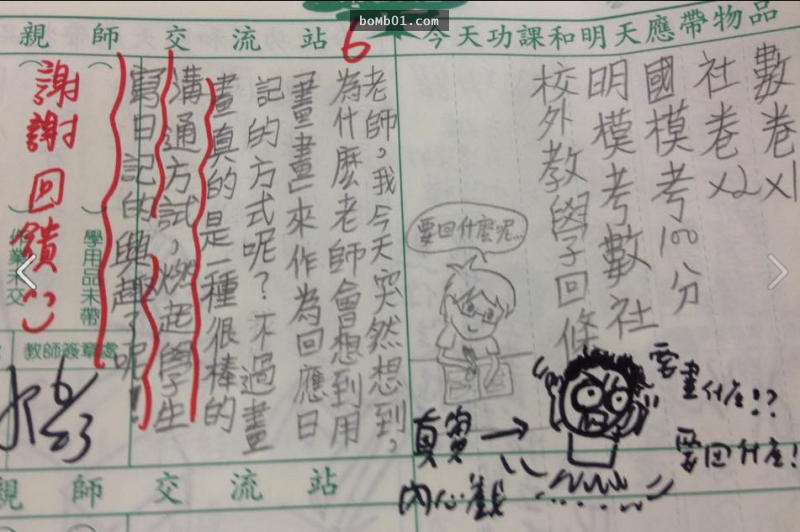 boMb01.com
親師交流站
6
今天功課和明天應帶物品
數卷x1
社卷x2
國模考100分
明模考數社
校外教學回條
老師,我今天突然想到,
為什麼老師會想到用
「畫畫」來作為回應日
記的方式呢?不過畫
畫真的是一種很棒的
溝通方試,燃起學生
寫日記的興趣呢!
謝謝回饋
學用品未帶
作業未交
教師簽章處
要回什麼呢...
要畫什麼!??
要回什麼!
真實
內心戲
親師交流站